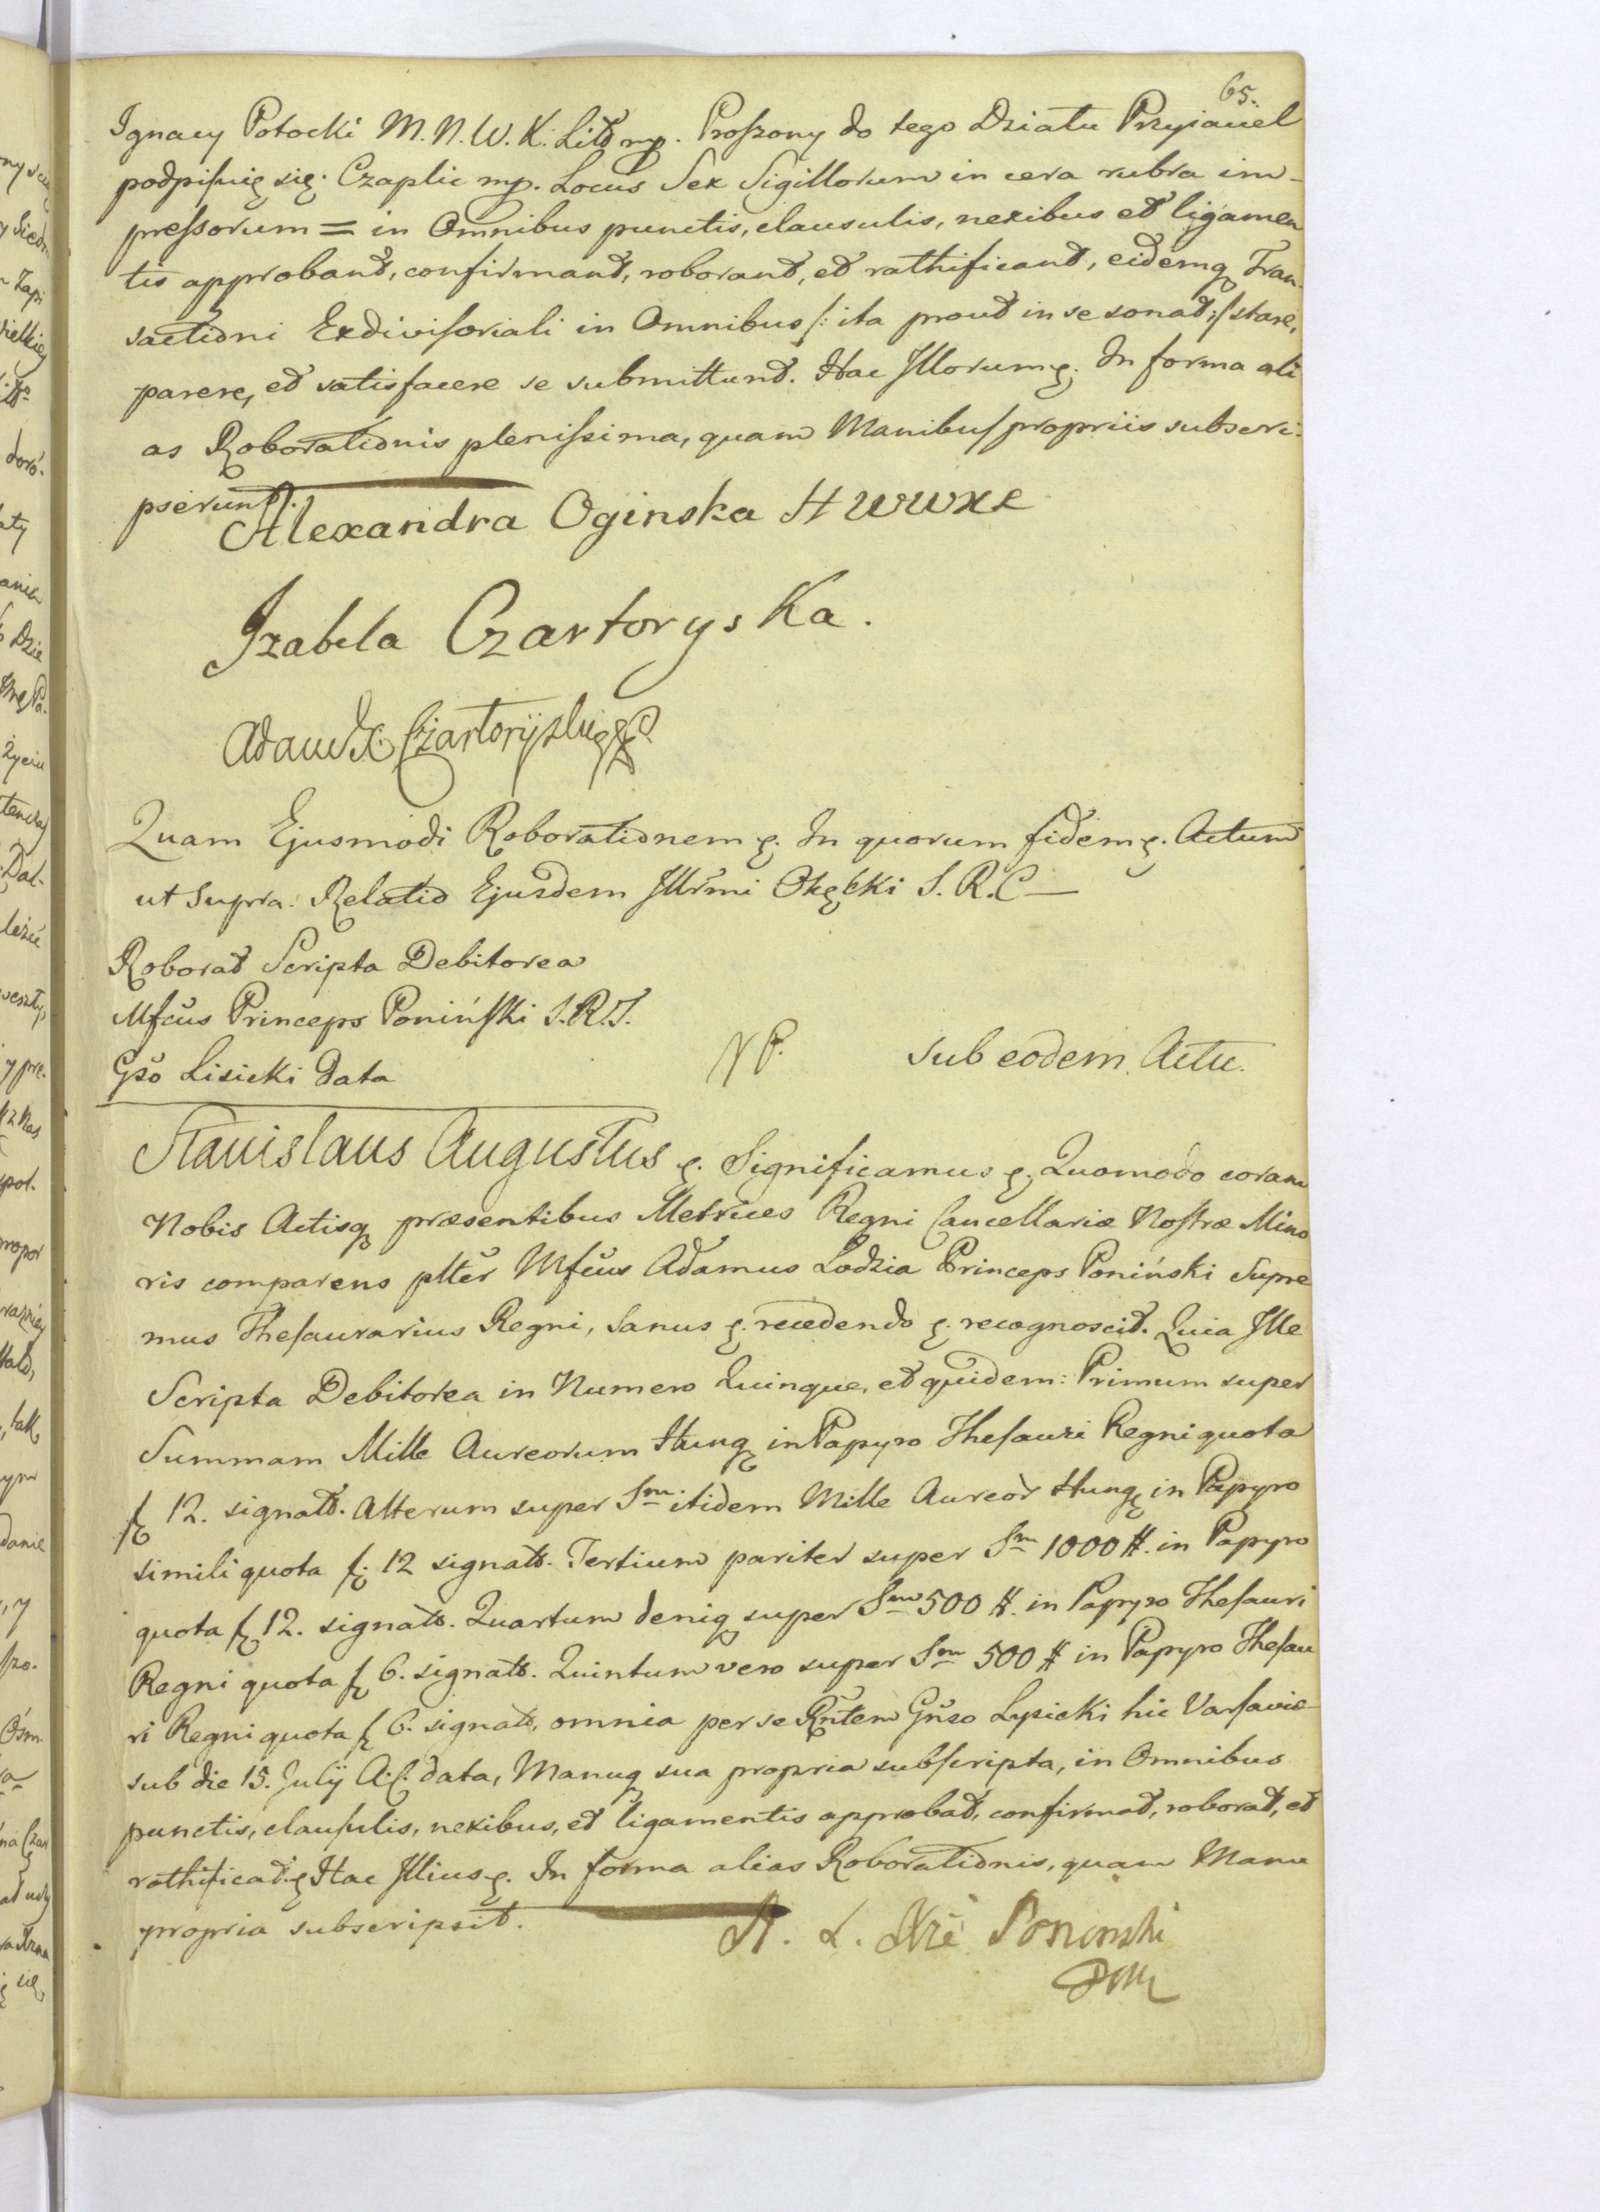 65.
Ignacy Potocki M. N. W. K. Litt mp. Proszony do tego Działu Przyiaciel
podpisuię się. Czaplic mp. Locus Sex Sigillorum in cera rubra im-
pressorum = in Omnibus punctis, clausulis, nexibus et ligamen
tis approbant, confirmant, roborant, et rathificant, eidemq Tran-
sactioni Exdivisoriali in Omnibus /: ita prout in se sonat :/ stare,
parere, et satisfacere se submittunt. Hac Illorum ę. In forma ali
as Roborationis plenissima, quam Manibus propriis subscri-
pserunt.
Alexandra Oginska H W W X L
Izabela Czartoryska.
Adam X. Czartoryski
Quam Ejusmodi Roborationem ę. In quorum fidem ę. Actum
ut Supra. Relatio Ejusdem Illrmi Okęcki S. R. C —
Roborat Scripta Debitorea
Mfcus Princeps Poniński S. R. T.
Gso Lisicki data
NP. Sub eodem Actu.
Stanislaus Augustus ę. Significamus ę. Quomodo coram
Nobis Actisq præsentibus Metrices Regni Cancellariæ Nostræ Mino
ris comparens plter Mfcus Adamus Lodzia Princeps Poniński Supre
mus Thesaurarius Regni, Sanus ę. recedendo ę. recognoscit. Quia Ille
Scripta Debitorea in Numero Quinque, et quidem: Primum super
Summam Mille Aureorum Hung in Papyro Thesauri Regni quota
f 12. signato. Alterum super Sm. itidem Mille Aureor Hung in Papyro
simili quota f. 12 signato. Tertium pariter super Sm 1000 #. in Papyro
quota f 12. signato. Quartum deniq super Sm 500 #. in Papyro Thesauri
Regni quota f 6. signato. Quintum vero super Sm 500 # in Papyro Thesau
ri Regni quota f 6. signato, omnia per se Rntem Gnso Lysicki hic Varsaviæ
sub die 15. Julij A. C. data, Manuq sua propria subscripta, in Omnibus
punctis, clausulis, nexibus, et ligamentis approbat, confirmat, roborat, et
rathificat. ę Hac Illius ę. In forma alias Roborationis, quam Manu
propria subscripsit.
A. L. Xże Poninski